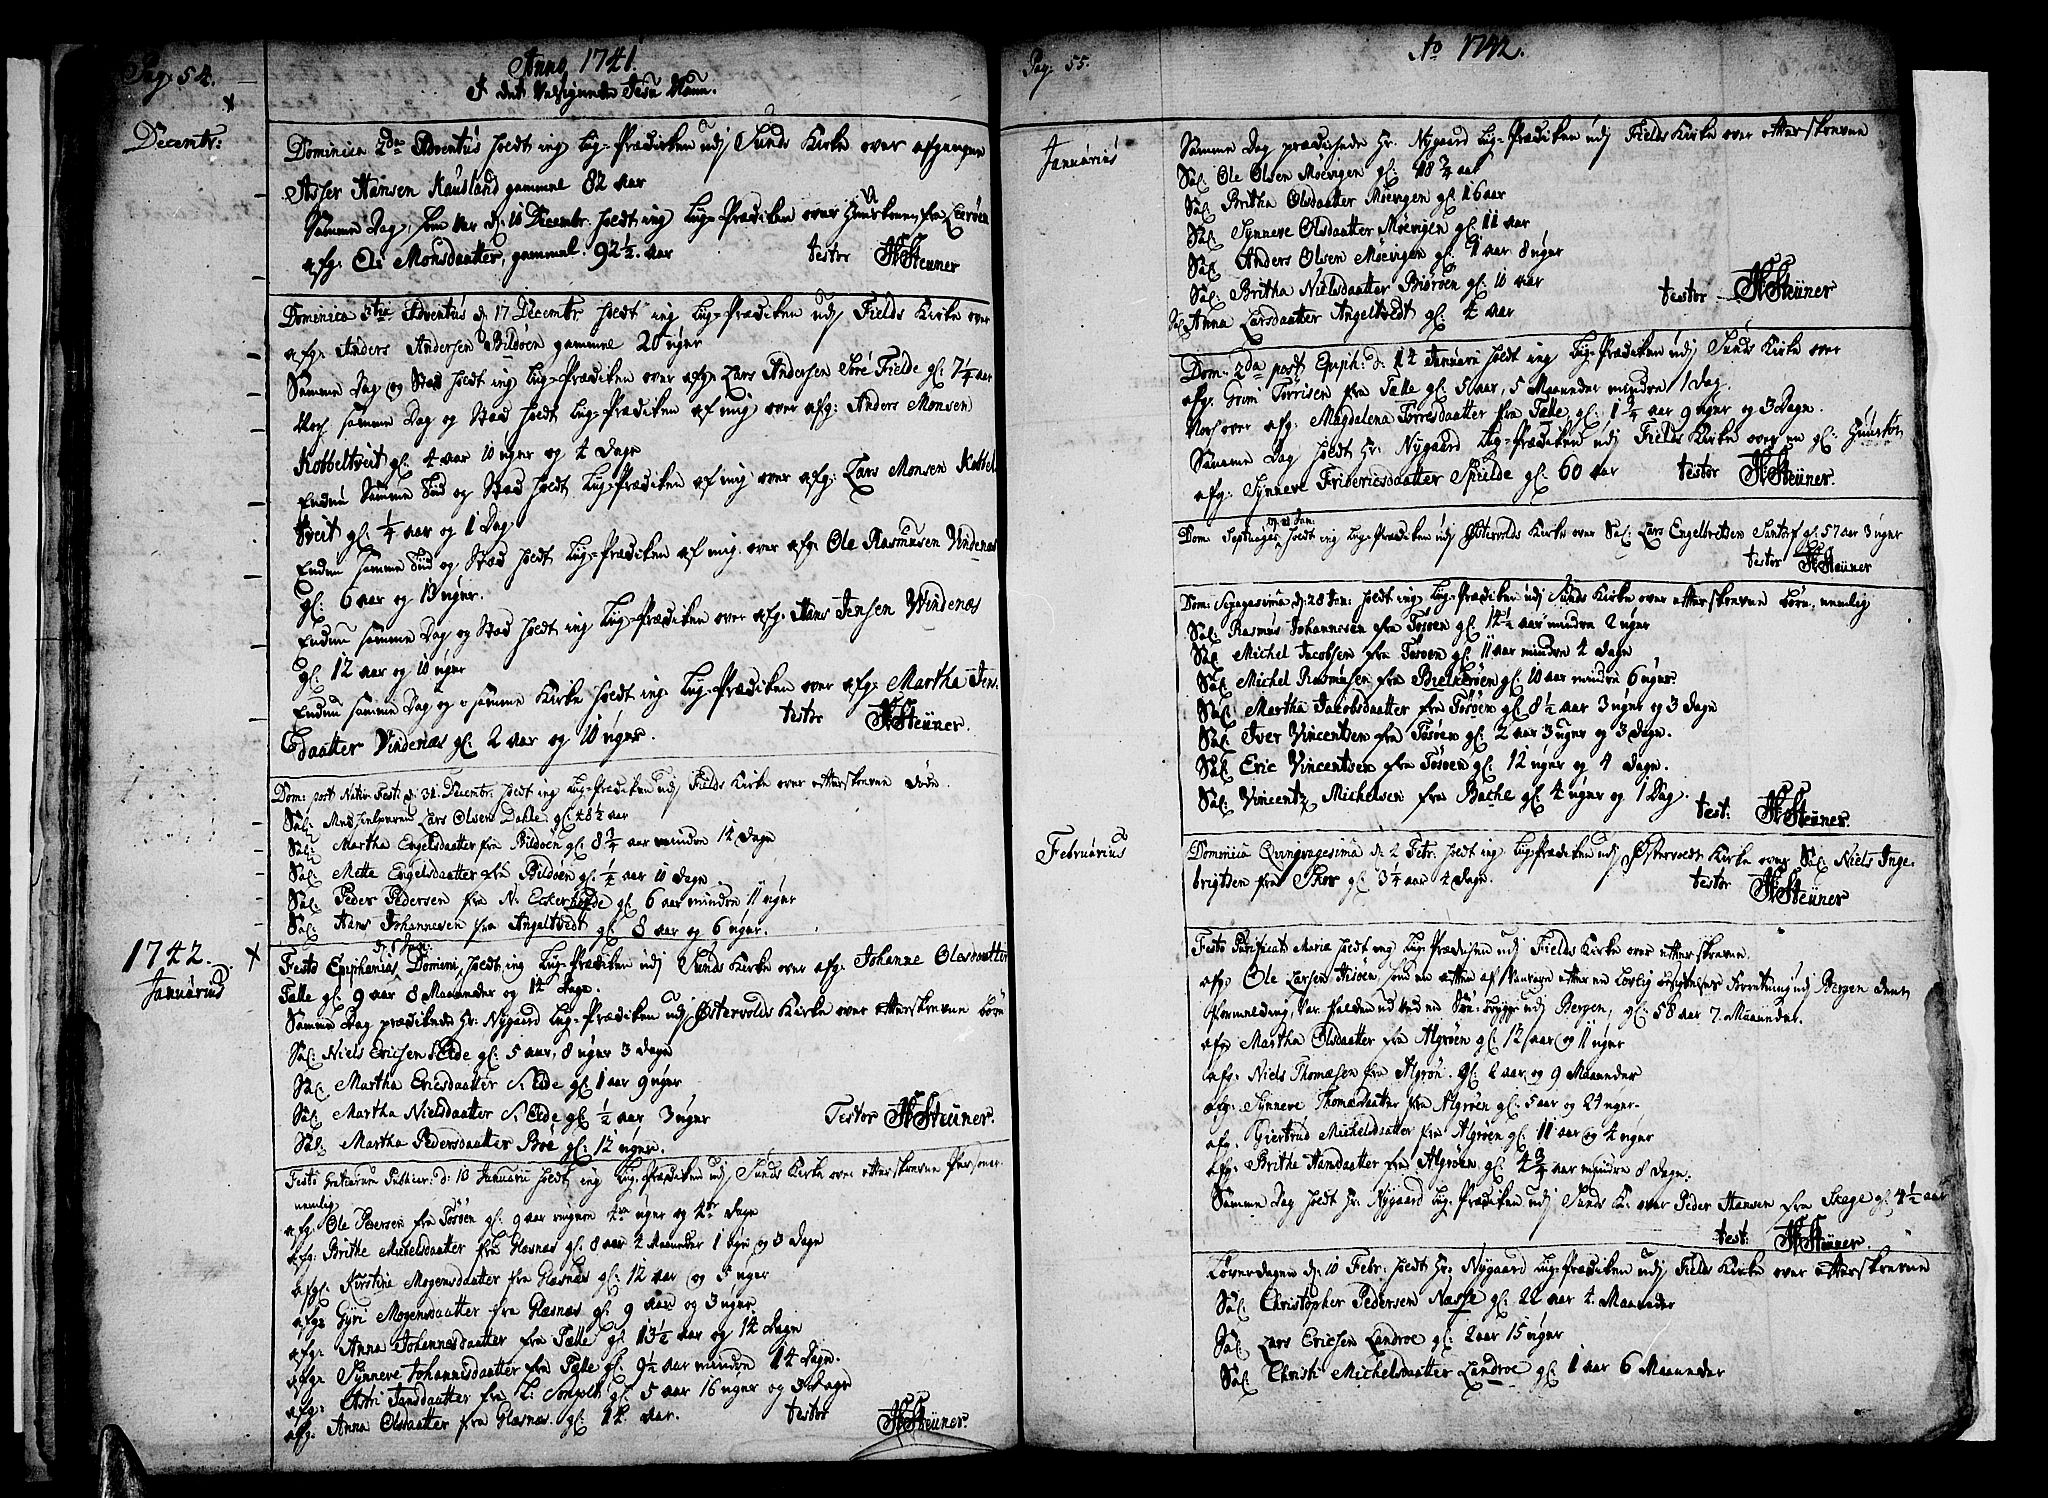 Pag. 54.
Anno 1741.
I det Velsignede Jesu Navn.
Decembr:
Dominica 2da Adventus holdt ieg Liig-Prædicken udj Sunds Kirke over afgangne
Asser Hansen Kausland gammel 82 aar
Samme Dag, som var d: 10 Decembr. holdt ieg Liig-Prædicken over Huuskonen fra Lerøen
afg. Oli Monsdaatter, gammel. 92½. aar testor HSteüner
Domenica 3tia Adventus d: 17 Decembr holdt ieg Liig-Prædicken udj Fields Kirke over
afg: Anders Andersen Bildøen gammel 20 uger
Samme Dag og Stæd holdt ieg Liig-Prædicken over afg: Lars Andersen Søre Fielde gl: 7¼ aar
Noch samme Dag og Stæd holdt Liig-Prædicken af mig over afg: Anders Monsen
Kobbeltveit gl: 4 aar 10 uger og 4 Dage
Endnu Samme Tiid og Stæd holdt Liig-Prædicken af mig over afg: Lars Monsen Kobbel
tveit gl: ¼ aar og 1 Dag
Endnu samme Tiid og Stæd holdt Liig-Prædicken af mig over afg: Ole Rasmusen Vindenæs
gl: 6 aar og 13 uger.
Endnu samme Dag og Stæd holdt ieg Liig-Prædicken over afg: Hans Jensen Windenæs
gl: 12 aar og 10 uger
Endnu samme Dag og i samme Kirke holdt ieg Liig-Prædicken over afg: Martha Jens
daatter Vindenæs gl: 2 aar og 10 uger. testor HSteüner.
Dom: post Nativ: Festi d: 31. Decembr: holdt ieg Liig-Prædicken udj Fields Kirke over efterskrevne Døde.
Sal: Medhielperen Lars Olsen Dahle gl: 48½ aar
Sal: Martha Engelsdaatter fra Bildøen gl: 8¾ aar mindre 14 Dage
Sal: Mette Engelsdaatter fra Bildøen gl: ¼ aar 10 Dage
Sal: Peder Pedersen fra N: Eckerhofde gl: 6 aar mindre 11 uger
Sal: Hans Johannesen fra Angeltvedt gl: 8 aar og 6 uger.
1742.
Januarius
d: 6 Jan:
Festo Epiphanias Domini, holdt ieg Liig-Prædicken udj Sunds Kirke over afg: Johanne Olesdaatter
Tælle gl: 9 aar 8 Maaneder og 14 Dage.
Samme Dag prædikede Hr: Nygaard Liig-Prædicken udj Østervolds Kirke over efterskrevne børn
Sal: Niels Ericsen S: Eide gl: 5 aar, 8 uger 3 Dage
Sal: Martha Ericsdaatter S: Eide gl: 1 aar 9 uger
Sal: Martha Nielsdaatter S: Eide gl: ½ aar 3 uger Testor HSteüner.
Sal: Martha Pedersdaatter Boe gl: 12 uger.
Festo d: 10 Januarii holdt ieg Liig-Prædicken udj Sunds Kirke over efterskrevne Personer
nemlig
afg: Ole Petersen fra Tosøen gl: 9 aar 4re uger og 4re Dage
afg: Brithe Michelsdaatter fra Glæsnæs gl: 8 aar 2 Maaneder 1 uge og 3 Dage
afg: Kirstine Mogensdaatter fra Glæsnæs gl: 12 aar og 5 uger
afg: Gyri Mogensdaatter fra Glæsnæs gl: 9 aar og 3 uger
afg: Anna Johannesdaatter fra Tælle gl: 13½ aar og 14 Dage
afg: Synneve Johannisdaatter fra Tælle gl: 9½ aar mindre 14 Dage.
afg: Astri Jansdaatter fra gl: 5 aar 16 uger og 3 Dage
afg: Anna Olsdaatter fra Glæsnæs. gl: 12. aar. testor HSteüner.
Pag: 55.
Ao 1742.
Januarius
Samme Dag prædickede Hr. Nygaard Liig-Prædicken udj Fields Kirke over efterskrevne
Sal: Ole Olsen Møevigen gl: 18¾ aar
Sal: Britha Olsdaatter Møevigen gl: 16 aar
Sal: Synneve Olsdaatter Møevigen gl: 11 aar
Sal: Anders Olsen Møevigen gl: 1 aar 8 uger
Sal: Britha Nielsdaatter Biørøen gl: 10 aar testor HSteüner
Sal: Anna Larsdaatter Angeltvedt gl: 4 aar
Dom: 2da post Epiph: d: 14 Januari holdt ieg Liig-Prædicken udj Sunds Kirke over
afg: Grim Torrisen fra Tælle gl: 5 aar, 5 Maaneder mindre 1 Dag.
Noch over afg: Magdalena Torresdaatter fra Tælle, gl: 1¾ aar 9 uger og 3 Dage.
Samme Dag holdt Hr: Nygaard Liig-Prædicken udj Fields Kirke over en gl:
afg: Synneve Friderichsdaatter Spielde gl: 60 aar testor HSteüner.
Dom: Septuages: holdt ieg Liig-Prædicken udj Østervolds Kirke over Sal: Lars Engelbretsen Santorf gl: 57 aar 3 uger
testor HSteüner
Dom: Sexagesima d: 28 Jan: holdt ieg Liig-Prædicken udj Sunds Kirke over efterskrevne børn, nemlig
Sal: Rasmus Johannesen fra Tosøen gl: 14½ aar mindre 2 uger
Sal: Michel Jacobsen fra Tosøen gl: 11 aar mindre 4 Dage
Sal: Michel Rasmusen fra Bielkerøen gl: 10 aar mindre 6 uger
Sal: Martha Jacobsdaatter fra Tosøen gl: 8½ aar 3 uger og 3 Dage
Sal: Iver Vincentsen fra Tosøen gl: 2 aar 3 uger og 3 Dage.
Sal: Eric Vincentsen fra Tosøen gl: 12 uger og 4 Dage.
Sal: Vincentz Michelsen fra Bache gl: 4 uger og 1 Dag. test: HSteüner.
Februarius
Dominica Qvinqvagesima d: 2 Febr. holdt ieg Liig-Prædicken udj Østervoldt Kirke over Sal: Niels Inge-
brigtsen fra Skor gl: 3¼ aar 4 Dage. testor HSteüner
Festo Purificat: Mariæ holdt ieg Liig-Prædicken udj Fields Kirke over efterskrevne.
afg: Ole Larsen udj Bergen
Bergen, gl: 58 aar 7. Maaneder.
afg: Martha Olsdaatter fra Algrøen gl: 12 aar og 11 uger
afg: Niels Thomæsen fra Algrøn. gl: 2 aar og 9 Maaneder
afg: Synneve Thomæsdaatter fra Algrøen gl: 5 aar og 24 uger.
afg: Giertrud Michelsdaatter fra Algrøen gl: 11 aar og 4 uger
afg: Brithe Hansdaatter fra Algrøen gl: 4¾ aar mindre 8 Dage.
Samme Dag holdt Hr. Nygaard Liig-Prædicken udj Sunds K: over Peder Hansen fra Skage gl: 4½ aar
test: HSteüner
Løverdagen d: 10 Febr. holdt Hr: Nygaard Liig-Prædicken udj Fields Kirke over efterskrevne
Sal: Christopher Pedersen Næsse gl: 22 aar 4. Maaneder
Sal: Lars Ericsen Landroe gl: 2 aar 15 uger
Sal: Christi Michelsdaatter Landroe gl: 1 aar 6 Maaneder